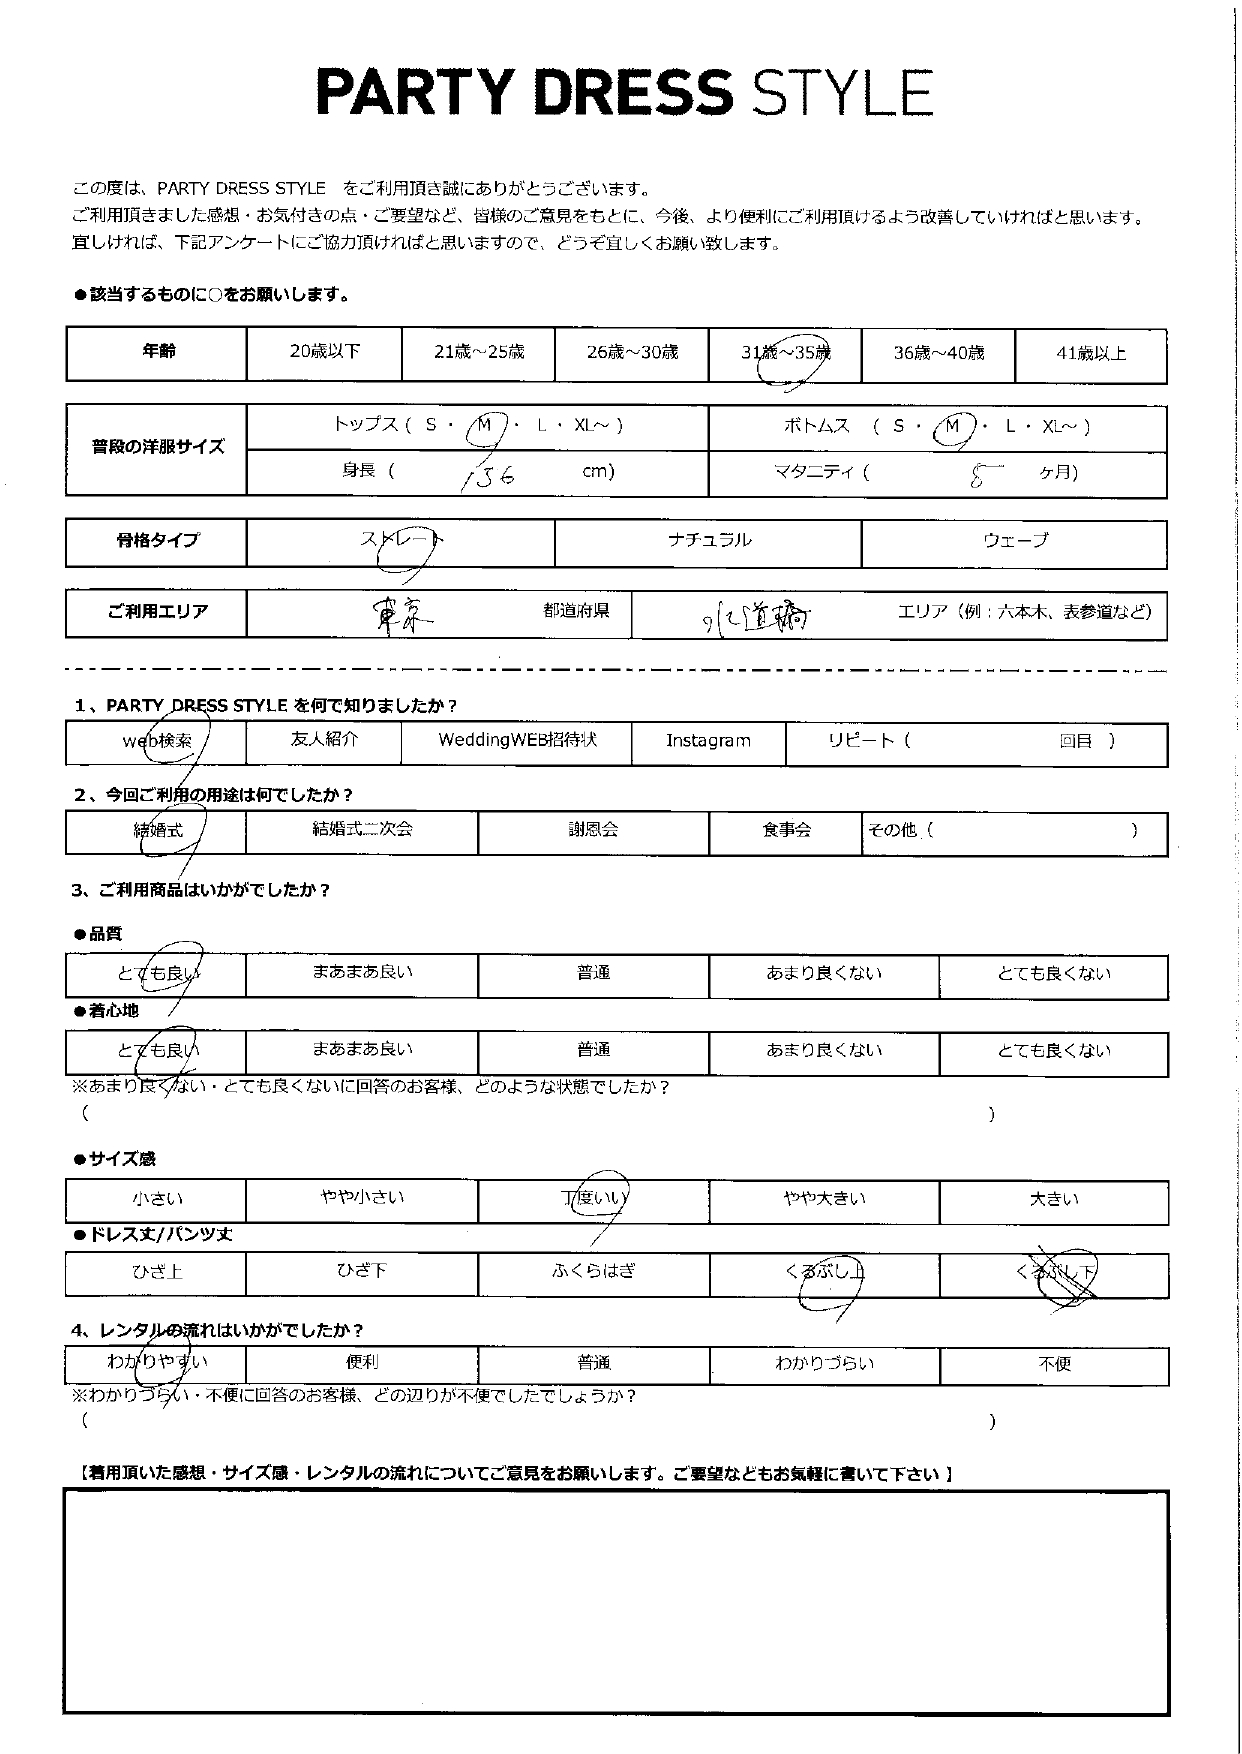 PARTY DRESS STYLE
この度は、PARTY DRESS STYLE　をご利用頂き誠にありがとうございます。
ご利用頂きました感想・お気付きの点・ご要望など、皆様のご意見をもとに、今後、より便利にご利用頂けるよう改善していければと思います。
宜しければ、下記アンケートにご協力頂ければと思いますので、どうぞ宜しくお願い致します。
●該当するものに○をお願いします。
年齢 20歳以下 21歳～25歳 26歳～30歳 31歳～35歳 36歳～40歳 41歳以上
普段の洋服サイズ トップス ( S ・ M ・ L ・ XL～ ) ボトムス ( S ・ M ・ L ・ XL～ )
身長 ( 156 cm) マタニティ ( 8 ヶ月)
骨格タイプ ストレート ナチュラル ウェーブ
ご利用エリア 東京 都道府県 水道橋 エリア（例：六本木、表参道など）
1、PARTY DRESS STYLE を何で知りましたか？
web検索 友人紹介 WeddingWEB招待状 Instagram リピート ( 回目 )
2、今回ご利用の用途は何でしたか？
結婚式 結婚式二次会 謝恩会 食事会 その他 ( )
3、ご利用商品はいかがでしたか？
●品質
とても良い まあまあ良い 普通 あまり良くない とても良くない
●着心地
とても良い まあまあ良い 普通 あまり良くない とても良くない
※あまり良くない・とても良くないに回答のお客様、どのような状態でしたか？
( )
●サイズ感
小さい やや小さい 丁度いい やや大きい 大きい
●ドレス丈/パンツ丈
ひざ上 ひざ下 ふくらはぎ くるぶし上 くるぶし下
4、レンタルの流れはいかがでしたか？
わかりやすい 便利 普通 わかりづらい 不便
※わかりづらい・不便に回答のお客様、どの辺りが不便でしたでしょうか？
( )
【着用頂いた感想・サイズ感・レンタルの流れについてご意見をお願いします。ご要望などもお気軽に書いて下さい 】